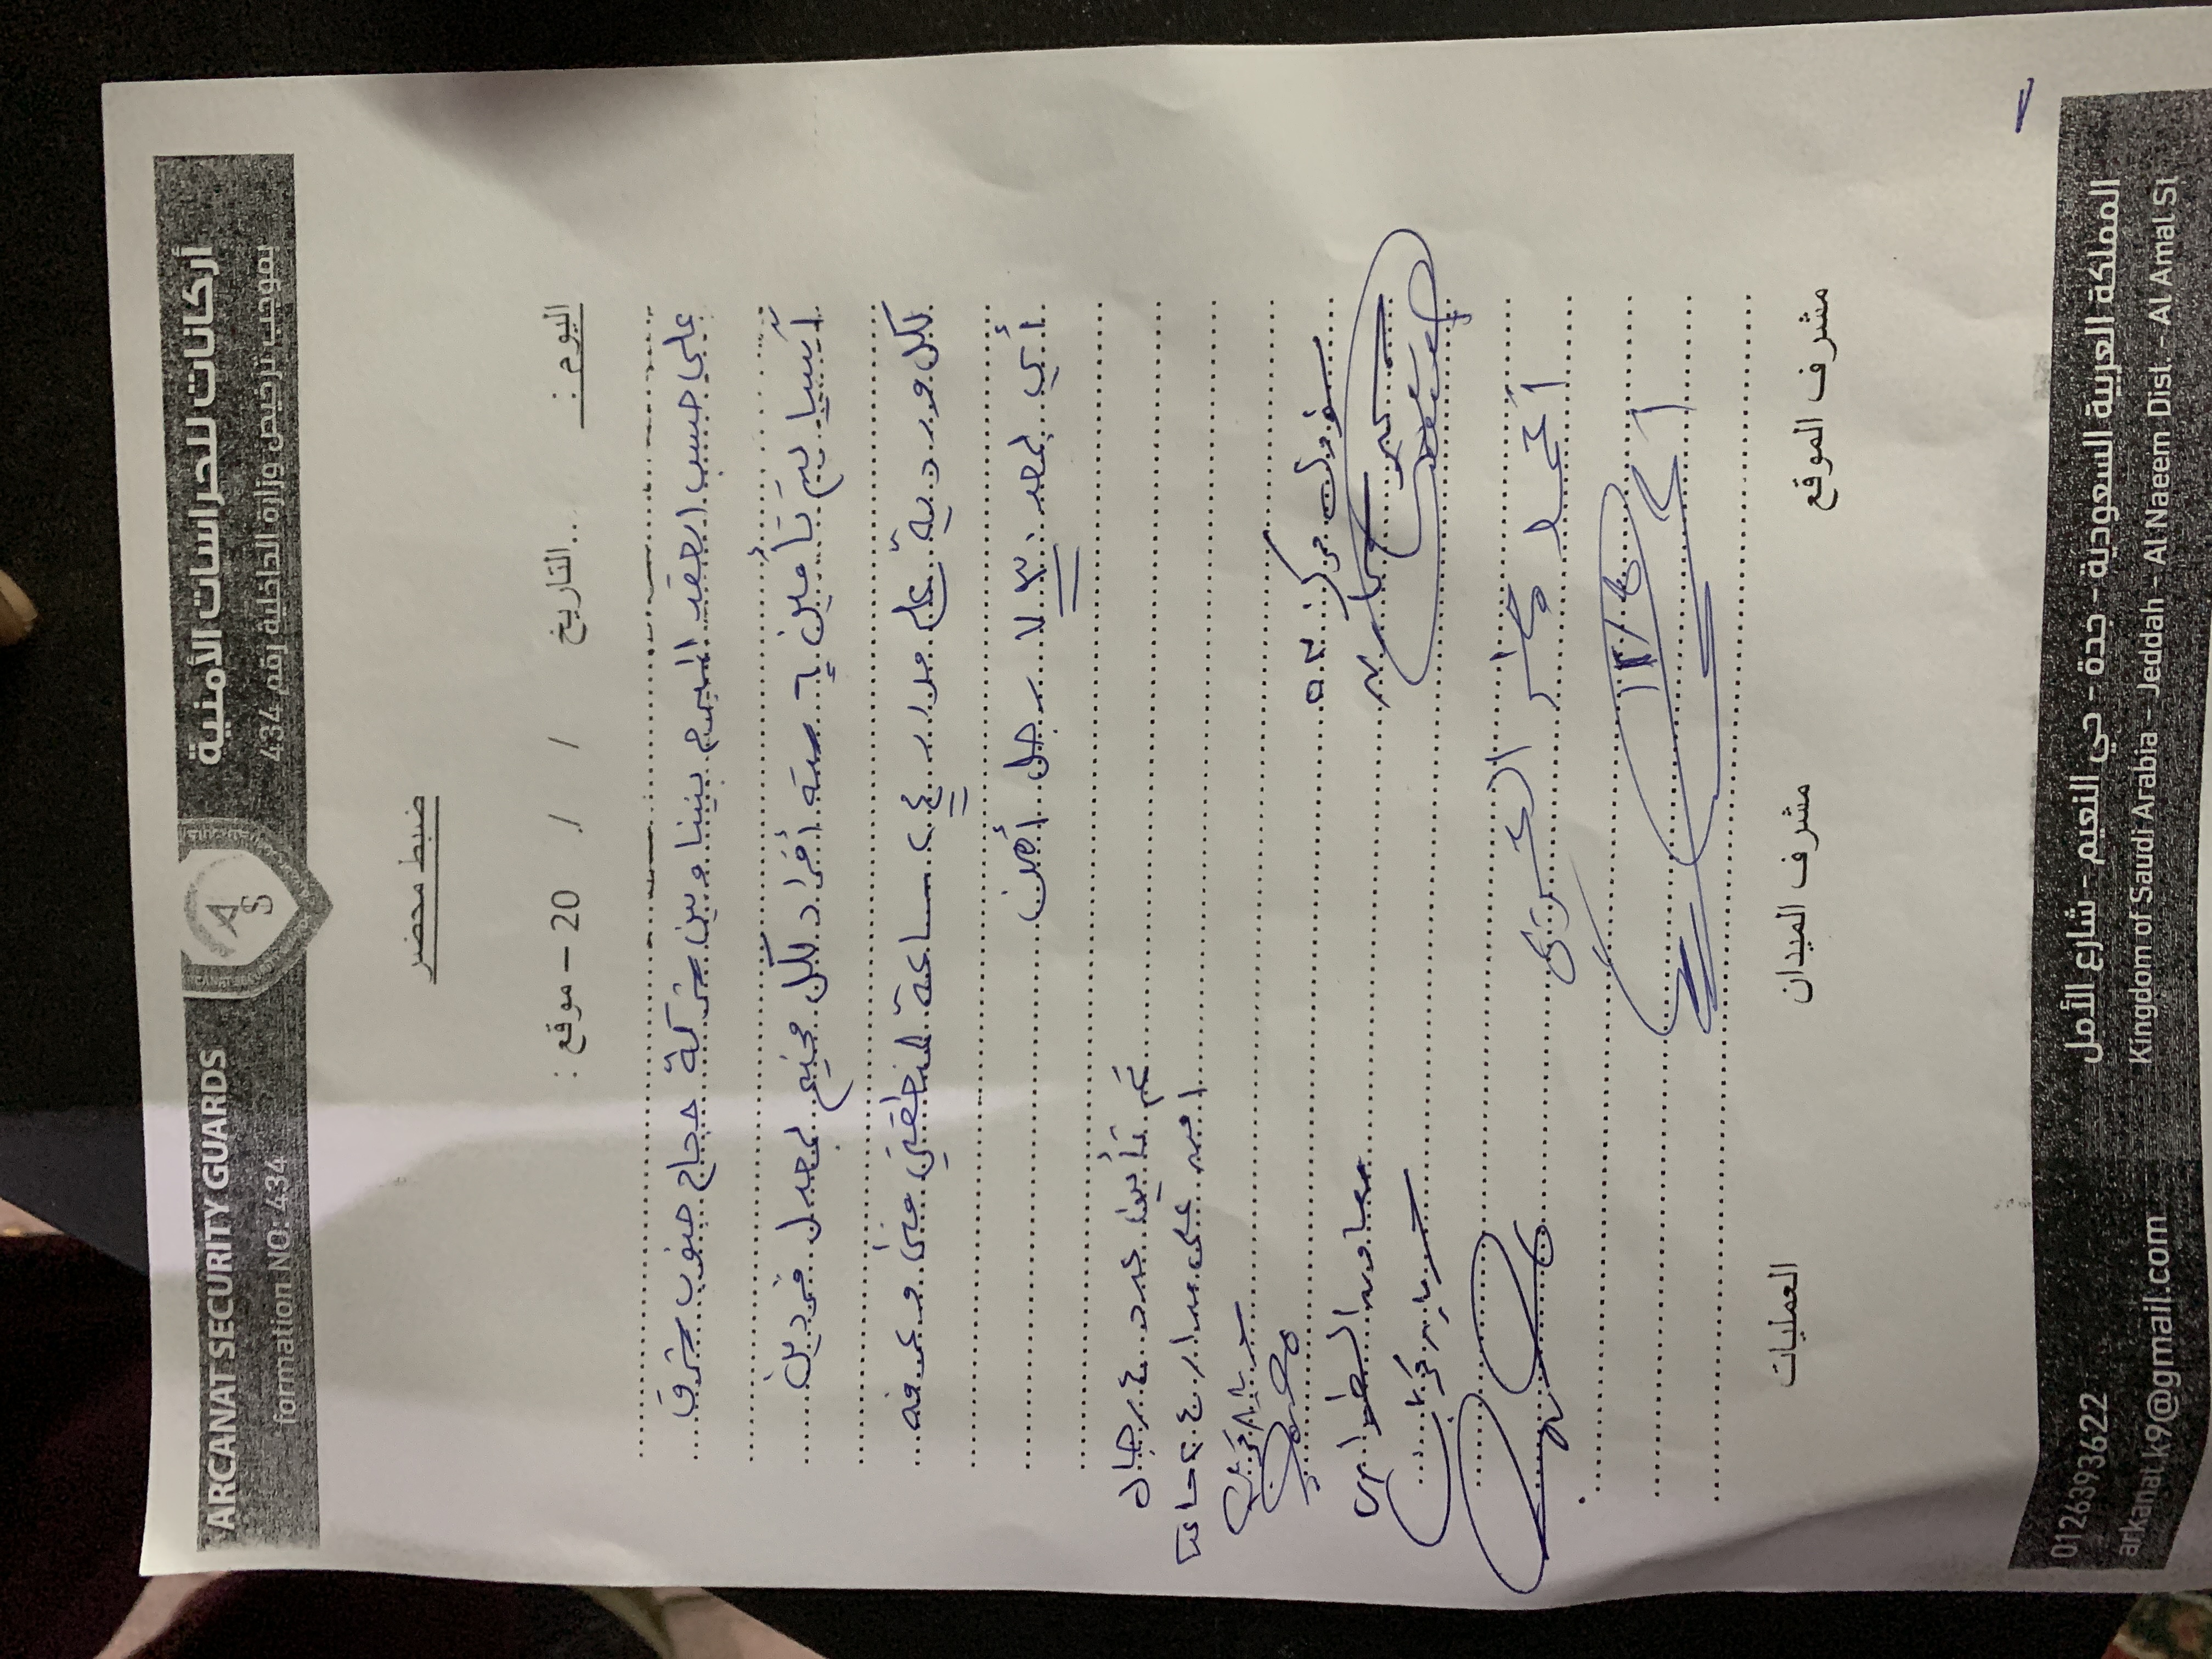 ARCANAT SECURITY GUARDS
formation NO: 434
A
S
أركانات للحراسات الأمنية
بموجب ترخيص وزارة الداخلية رقم 434
ضبط محضر
اليوم : ..التاريخ / / 20 – موقع :
على حسب العقد المبرم بيننا وبين شركة حجاج جنوب شرق
آسيا يتم تأمين ٦ سته أفراد لكل مخيم بمعدل فردين
لكل وردية على مدار ٢٤ ساعة لمنطقتي منى وعرفه
أي بعدد ٧٣٠ رجل أمن
تم تأمين عدد ٤ رجال
امن على مدار ٢٤ ساعة
مسؤول مركز
أحمد
العمليات
مشرف الميدان
مشرف الموقع
0126393622
arkanat.k9@gmail.com
المملكة العربية السعودية - جدة - حي النعيم - شارع الأمل
Kingdom of Saudi Arabia - Jeddah - Al Naeem Dist. - Al Amal St